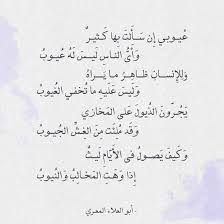 عُيوبي إن سَأَلتَ بِها كَثيرٌ
وَأَيُّ الناسِ لَيسَ لَهُ عُيوبُ
وَلِلإِنسانِ ظاهِرُ ما يَراهُ
وَلَيسَ عَلَيهِ ما تُخفي الغُيوبُ
يَجُرّونَ الذُيولَ عَلى المَخازي
وَقَد مُلِئَت مِنَ الغِشِّ الجُيوبُ
وَكَيفَ يَصولُ في الأَيّامِ لَيثٌ
إِذا وَهَتِ المَخالِبُ وَالنُيوبُ
- أبو العلاء المعري